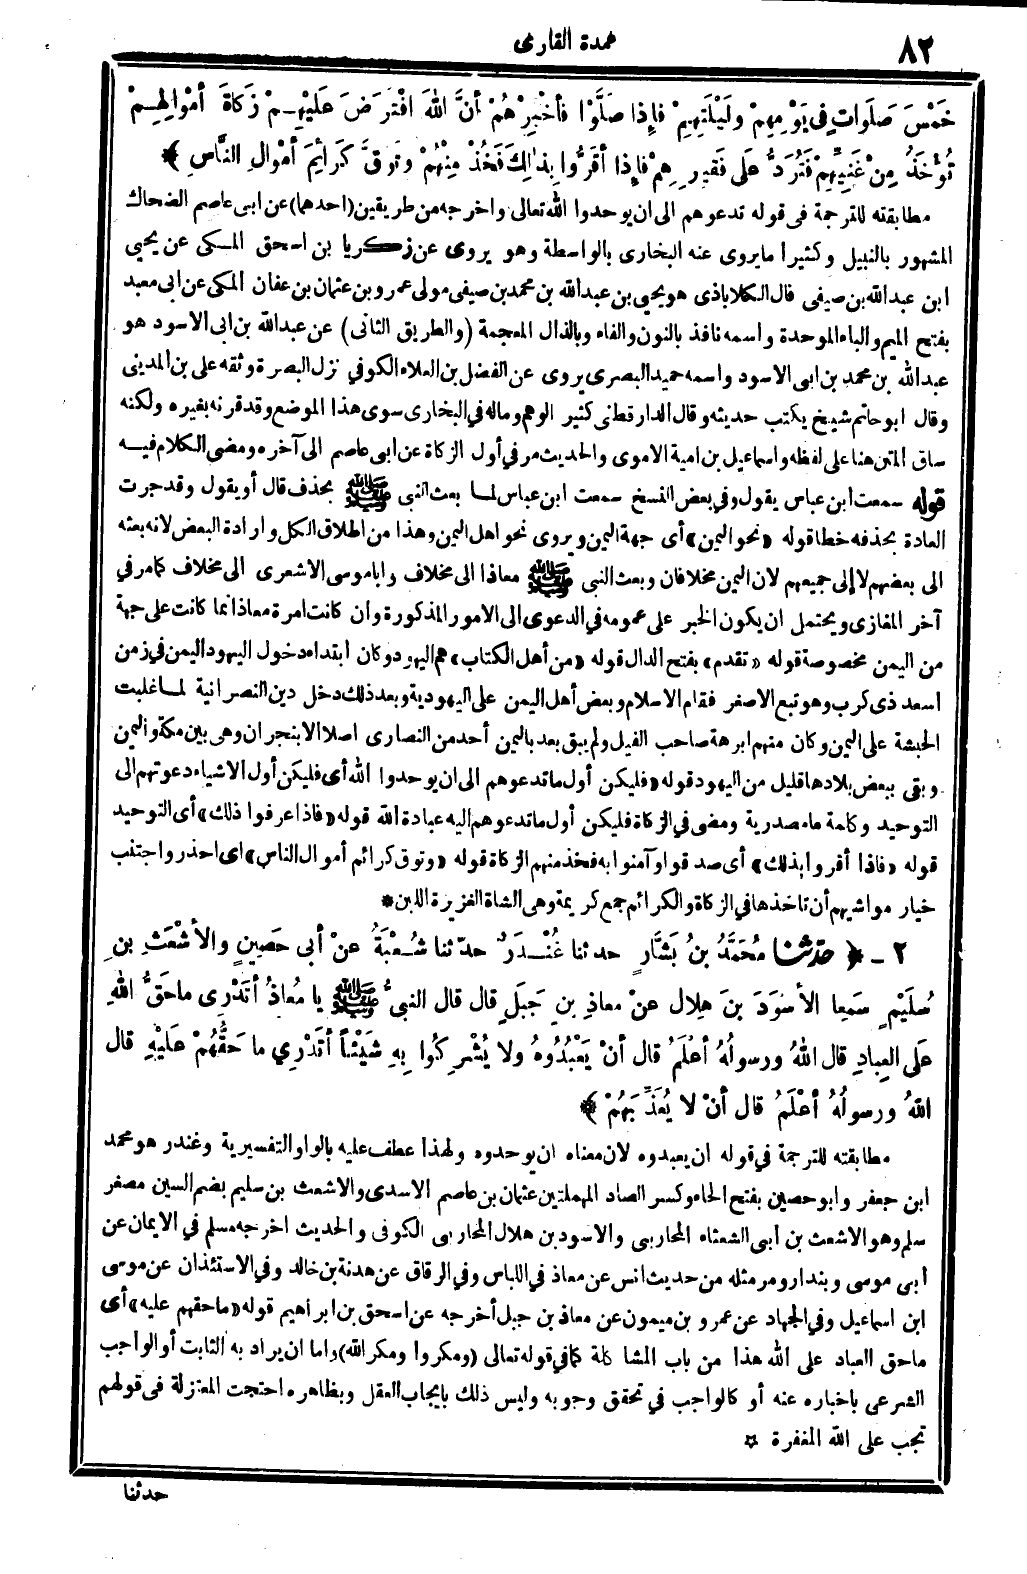 ٨٢
عمدة القارى
خَمْسَ صَلَوَاتٍ فِي يَوْمِهِمْ وَلَيْلَتِهِمْ فَإِذَا صَلَّوْا فَأَخْبِرْهُمْ أَنَّ اللهَ افْتَرَضَ عَلَيْهِمْ زَكَاةَ أَمْوَالِهِمْ
تُؤْخَذُ مِنْ غَنِيِّهِمْ فَتُرَدُّ عَلَى فَقِيرِهِمْ فَإِذَا أَقَرُّوا بِذَلِكَ فَخُذْ مِنْهُمْ وَتَوَقَّ كَرَائِمَ أَمْوَالِ النَّاسِ ﴾
مطابقته للترجمة فى قوله تدعوهم الى ان يوحدوا الله تعالى واخرجه من طريقين (احدهما) عن ابى عاصم الضحاك
المشهور بالنبيل وكثيرا ما يروى عنه البخارى بالواسطة وهو يروى عن زكريا بن اسحق المكى عن يحيى
ابن عبدالله بن صيفى قال الكلاباذى هو يحيى بن عبدالله بن محمد بن صيفى مولى عمرو بن عثمان بن عفان المكى عن ابى معبد
بفتح الميم والباء الموحدة واسمه نافذ بالنون والفاء وبالذال المعجمة (والطريق الثانى) عن عبدالله بن ابى الاسود هو
عبدالله بن محمد بن ابى الاسود واسمه حميد البصرى يروى عن الفضل بن العلاء الكوفي نزل البصرة وثقه على بن المدينى
وقال ابو حاتم شيخ يكتب حديثه وقال الدارقطنى كثير الوهم وماله في البخارى سوى هذا الموضع وقد قرنه بغيره ولكنه
ساق المتن هنا على لفظه واسماعيل بن امية الاموى والحديث مر في أول الزكاة عن ابى عاصم الى آخره ومضى الكلام فيه
قوله سمعت ابن عباس يقول وفي بعض النسخ سمعت ابن عباس لما بعث النبى ﷺ بحذف قال أو يقول وقد جرت
العادة بحذفه خطا قوله «نحو اليمن» أى جهة اليمن ويروى نحو اهل اليمن وهذا من اطلاق الكل وارادة البعض لانه بعثه
الى بعضهم لا إلى جميعهم لان اليمن مخلافان وبعث النبى ﷺ معاذا الى مخلاف واباموسى الاشعرى الى مخلاف كما مر في
آخر المغازى ويحتمل ان يكون الخبر على عمومه في الدعوى الى الامور المذكورة وان كانت امرة معاذ انما كانت على جهة
من اليمن مخصوصة قوله «تقدم» بفتح الدال قوله «من أهل الكتاب» هم اليهود وكان ابتداء دخول اليهود اليمن في زمن
اسعد ذى كرب وهو تبع الاصغر فقام الاسلام وبعض أهل اليمن على اليهودية وبعد ذلك دخل دين النصرانية لما غلبت
الحبشة على اليمن وكان منهم ابرهة صاحب الفيل ولم يبق بعد باليمن أحد من النصارى اصلا الا بنجران وهى بين مكة واليمن
وبقى ببعض بلادها قليل من اليهود قوله «فليكن أول ما تدعوهم الى ان يوحدوا الله أى فليكن أول الاشياء دعوتهم الى
التوحيد وكلمة ما مصدرية ومضى في الزكاة فليكن أول ما تدعوهم اليه عبادة الله قوله «فاذا عرفوا ذلك» أى التوحيد
قوله «فاذا أقروا بذلك» أى صدقوا وآمنوا به فخذ منهم الزكاة قوله «وتوق كرائم أموال الناس» اى احذر واجتنب
خيار مواشيهم أن تاخذها في الزكاة والكرائم جمع كريمة وهى الشاة الغزيرة اللبن *
٢ - ﴿ حدّثنا مُحَمَّدُ بنُ بَشَّارٍ حدثنا غُنْدَرٌ حدّثنا شُعْبَةُ عنْ أبى حَصِينٍ والأَشْعَثِ بنِ
سُلَيْمٍ سَمِعا الأَسْوَدَ بنَ هِلالٍ عنْ معاذِ بنِ جَبَلٍ قال قال النبىُّ ﷺ يا مُعاذُ أَتَدْرِى ماحَقُّ اللهِ
عَلَى العِبادِ قال اللهُ ورسولُهُ أعْلَمُ قال أنْ يَعْبُدُوهُ ولا يُشْرِكُوا بِهِ شَيْئاً أَتَدْرِي ما حَقُّهُمْ عَلَيْهِ قال
اللهُ ورسولُهُ أعْلَمُ قال أنْ لا يُعَذِّبَهُمْ ﴾
مطابقته للترجمة في قوله ان يعبدوه لان معناه ان يوحدوه ولهذا عطف عليه بالواو التفسيرية وغندر هو محمد
ابن جعفر وابو حصين بفتح الحاء وكسر الصاد المهملتين عثمان بن عاصم الاسدى والاشعث بن سليم بضم السين مصغر
سلم وهو الاشعث بن أبى الشعثاء المحاربى والاسود بن هلال المحاربى الكوفى والحديث اخرجه مسلم في الايمان عن
أبى موسى وبندار ومر مثله من حديث انس عن معاذ في اللباس وفي الرقاق عن هدبة بن خالد وفي الاستئذان عن موسى
ابن اسماعيل وفي الجهاد عن عمرو بن ميمون عن معاذ بن جبل أخرجه عن اسحق بن ابراهيم قوله «ما حقهم عليه» أى
ماحق العباد على الله هذا من باب المشاكلة كما في قوله تعالى (ومكروا ومكر الله) واما ان يراد به الثابت أو الواجب
الشرعى باخباره عنه أو كالواجب في تحقق وجوبه وليس ذلك بايجاب العقل وبظاهره احتجت المعتزلة فى قولهم
تجب على الله المغفرة *
حدثنا